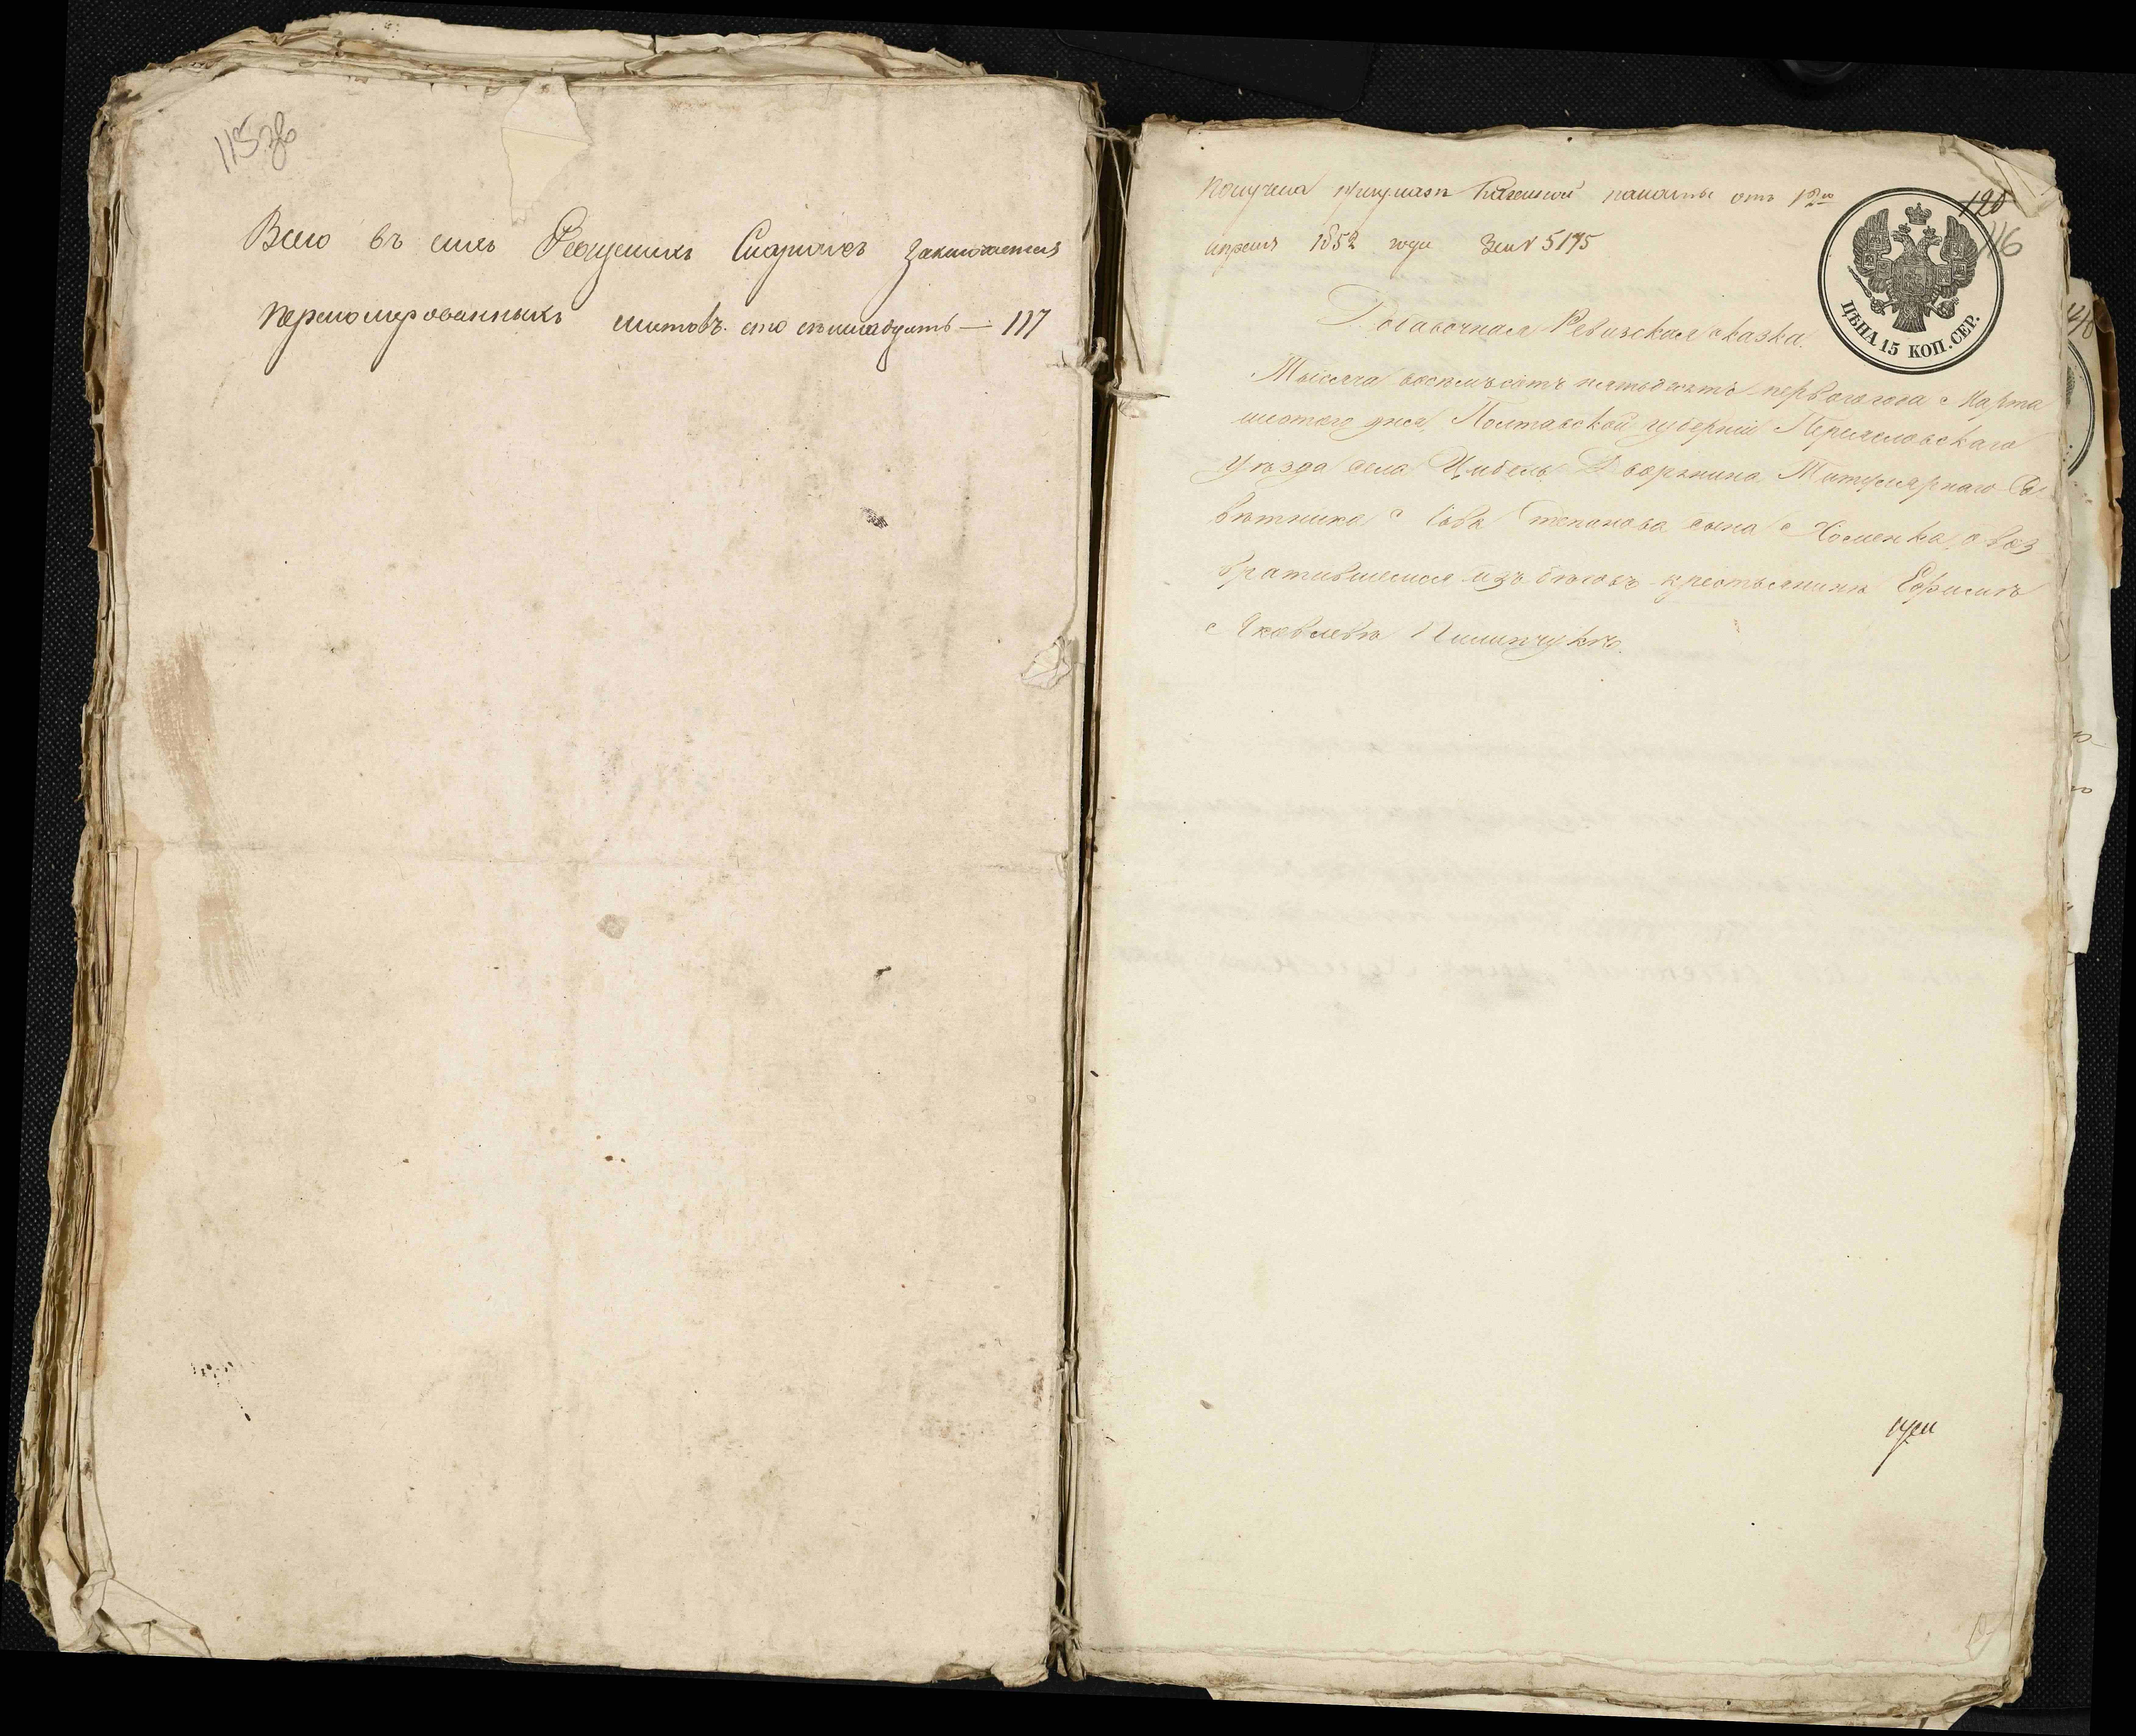 115 зв
Всего въ сихъ Ревизскихъ Сказкахъ заключается
перномерованныхъ листовъ сто семнадцать — 117
Получена при указѣ Казенной палаты отъ 18го
апреля 1852 года За № 5175
120
116
ЦѢНА 15 КОП. СЕР.
Добавочная Ревизская сказка.
Тысяча восемьсотъ пятьдесятъ перваго года Марта
дня, Полтавской губерніи Переяславскаго
уѣзда села Цибель Дворянина Титулярнаго Со
вѣтника Степанова сына Хоменка, о воз
вратившемся изъ бѣговъ крестьянинѣ Ефимѣ
Яковлевѣ Пилипчукѣ.